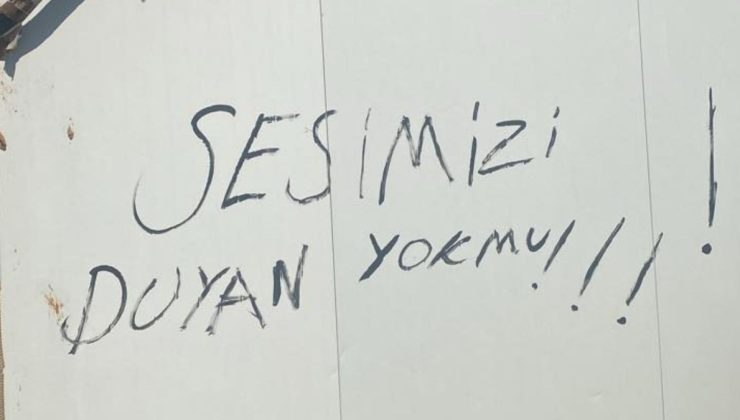 SESİMİZİ !
DUYAN YOKMU!!!